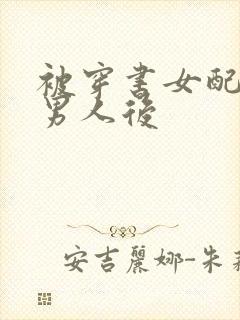 被穿书女配
男人後
安吉麗娜-朱